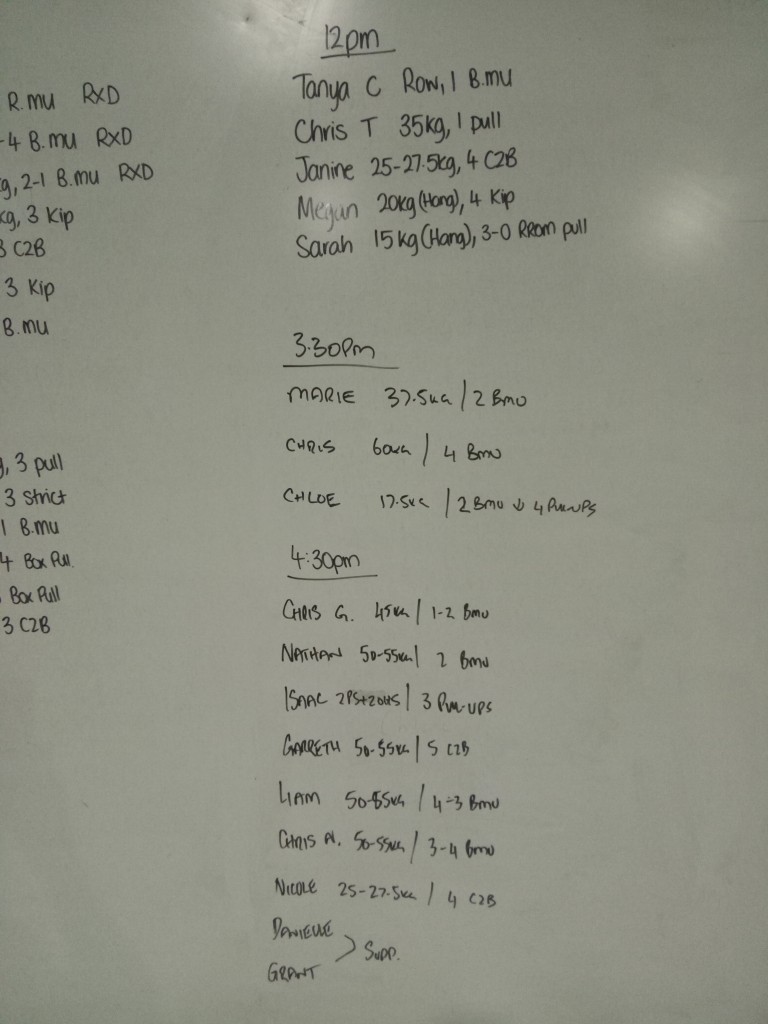 R.mu RXD
-4 B.mu RXD
g, 2-1 B.mu RXD
kg, 3 Kip
3 C2B
3 Kip
B.mu
g, 3 pull
3 Strict
1 B.mu
4 Box Pull.
Box Pull
3 C2B
12pm
Tanya C Row, 1 B.mu
Chris T 35kg, 1 pull
Janine 25-27.5kg, 4 C2B
Megan 20kg (Hang), 4 Kip
Sarah 15kg (Hang), 3-0 RRom pull
3.30pm
MARIE 37.5KG / 2 BMU
CHRIS 60KG / 4 BMU
CHLOE 17.5KG / 2 BMU ↓ 4 PULL-UPS
4:30pm
CHRIS G. 45KG / 1-2 BMU
NATHAN 50-55KG / 2 BMU
ISAAC 2PS+2OHS / 3 PULL-UPS
GARRETH 50-55KG / 5 C2B
LIAM 50-55KG / 4-3 BMU
CHRIS N. 50-55KG / 3-4 BMU
NICOLE 25-27.5KG / 4 C2B
DANIELLE
> SUPP.
GRANT